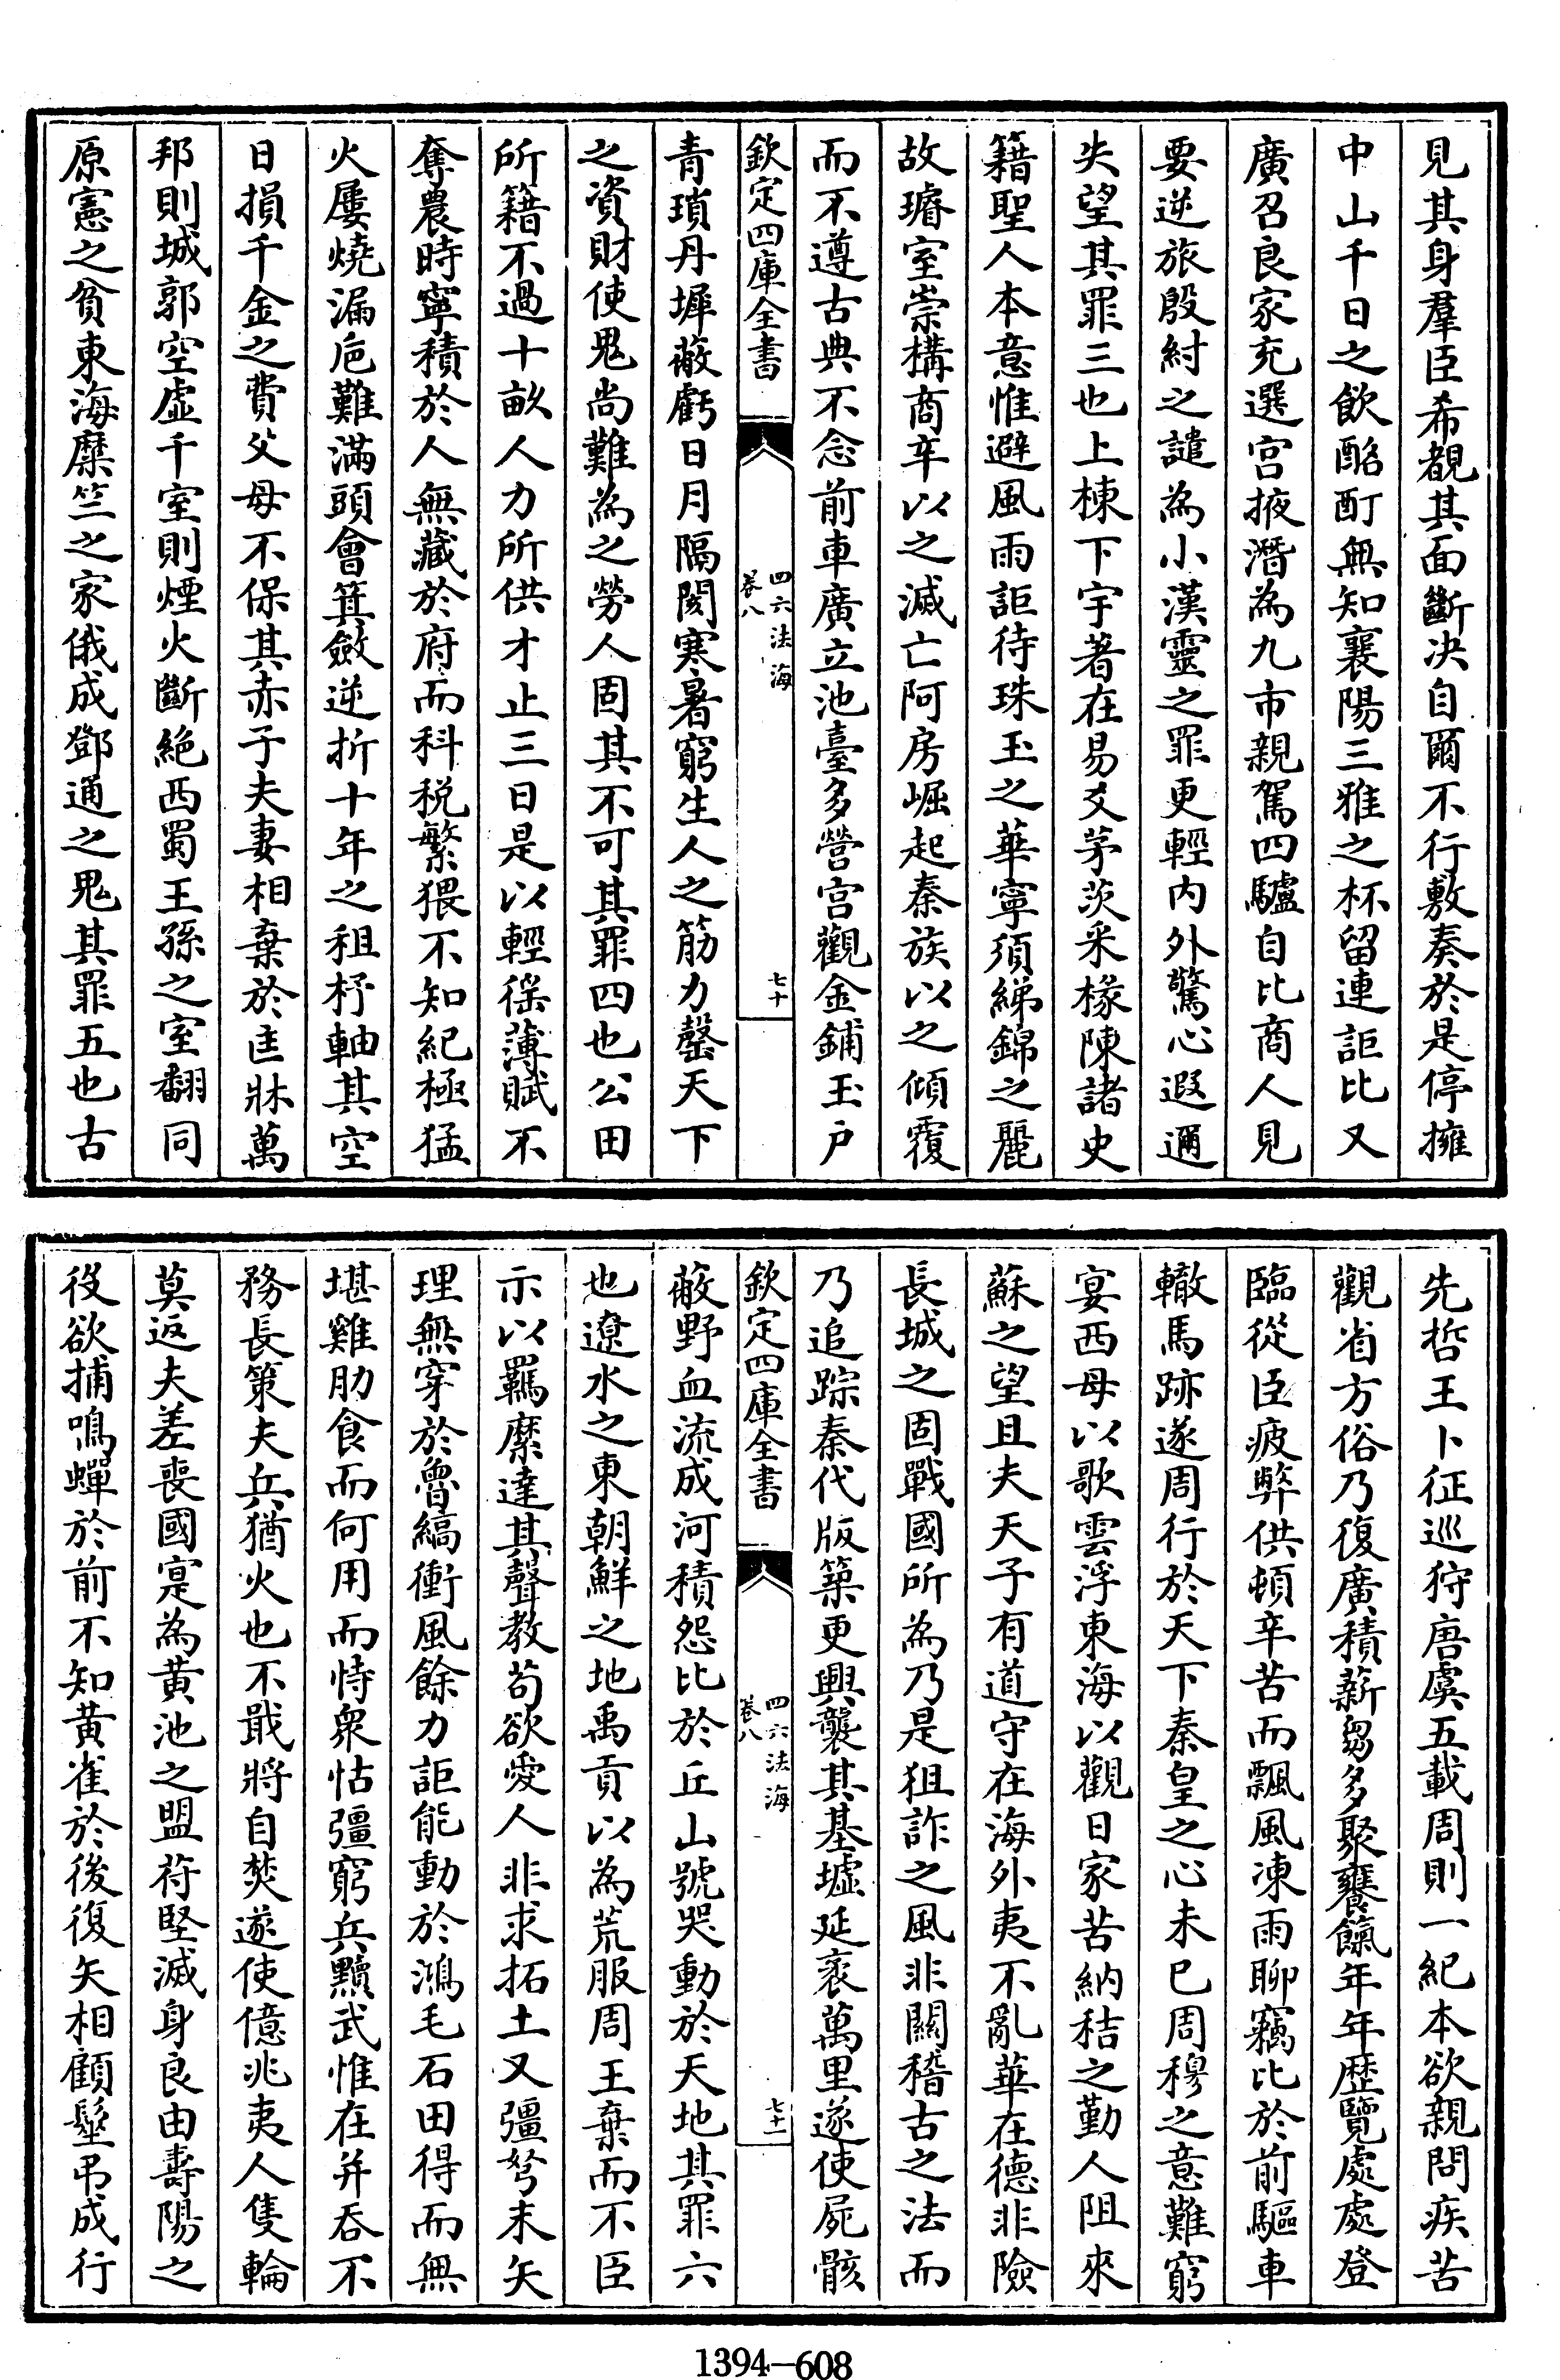 見其身羣臣希覩其面斷決自爾不行敷奏於是停擁
中山千日之飲酩酊無知襄陽三雅之杯留連詎比又
廣召良家充選宮掖潛為九市親駕四驢自比商人見
要逆旅殷紂之譴為小漢靈之罪更輕內外驚心遐邇
失望其罪三也上棟下宇著在易爻茅茨采椽陳諸史
籍聖人本意惟避風雨詎待珠玉之華寧須綈錦之麗
故璿室崇構商辛以之滅亡阿房崛起秦族以之傾覆
而不遵古典不念前車廣立池臺多營宮觀金鋪玉戶
欽定四庫全書
四六法海
卷八
七十
青瑣丹墀蔽虧日月隔閡寒暑窮生人之筋力罄天下
之資財使鬼尚難為之勞人固其不可其罪四也公田
所籍不過十畝人力所供才止三日是以輕徭薄賦不
奪農時寧積於人無藏於府而科税繁猥不知紀極猛
火屢燒漏卮難滿頭會箕斂逆折十年之租杼軸其空
日損千金之費父母不保其赤子夫妻相棄於匡牀萬
邦則城郭空虛千室則煙火斷絶西蜀王孫之室翻同
原憲之貧東海糜竺之家俄成鄧通之鬼其罪五也古
先哲王卜征巡狩唐虞五載周則一紀本欲親問疾苦
觀省方俗乃復廣積薪芻多聚饔餼年年歴覽處處登
臨從臣疲弊供頓辛苦而飄風凍雨聊竊比於前驅車
轍馬跡遂周行於天下秦皇之心未已周穆之意難窮
宴西母以歌雲浮東海以觀日家苦納秸之勤人阻來
蘇之望且夫天子有道守在海外夷不亂華在德非險
長城之固戰國所為乃是狙詐之風非關稽古之法而
乃追踪秦代版築更興襲其基墟延袤萬里遂使屍骸
欽定四庫全書
四六法海
卷八
七十一
蔽野血流成河積怨比於丘山號哭動於天地其罪六
也遼水之東朝鮮之地禹貢以為荒服周王棄而不臣
示以羈縻達其聲教苟欲愛人非求拓土又彊弩末矢
理無穿於魯縞衝風餘力詎能動於鴻毛石田得而無
堪雞肋食而何用而恃衆怙彊窮兵黷武惟在并吞不
務長策夫兵猶火也不戢將自焚遂使億兆夷人隻輪
莫返夫差喪國寔為黃池之盟苻堅滅身良由壽陽之
役欲捕鳴蟬於前不知黃雀於後復矢相顧髽弔成行
1394—608